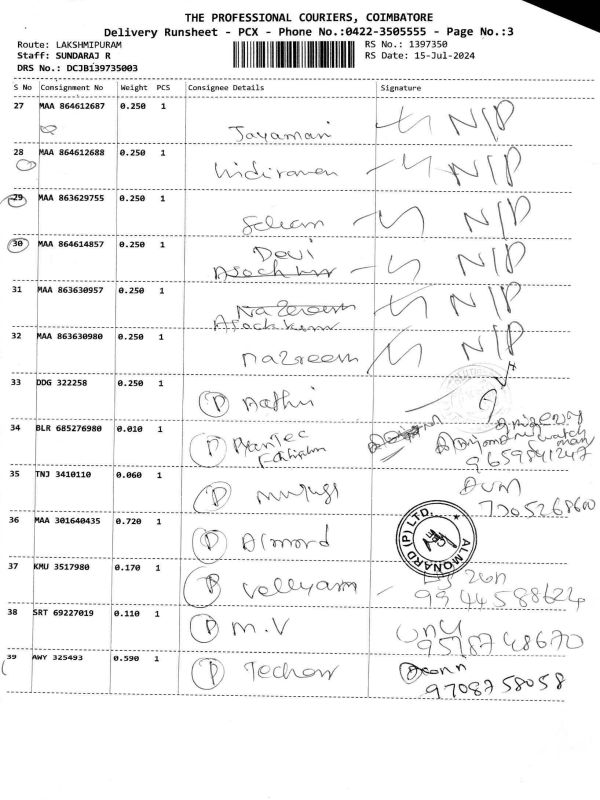 THE PROFESSIONAL COURIERS, COIMBATORE
Delivery Runsheet - PCX - Phone No.:0422-3505555 - Page No.:3
Route: LAKSHMIPURAM RS No.: 1397350
Staff: SUNDARAJ R RS Date: 15-Jul-2024
DRS No.: DCJB139735003
S No Consignment No Weight PCS Consignee Details Signature
27 MAA 864612687 0.250 1 Jayamani N/P
28 MAA 864612688 0.250 1 N/P
29 MAA 863629755 0.250 1 N/P
30 MAA 864614857 0.250 1 Devi N/P
31 MAA 863630957 0.250 1 N/P
32 MAA 863630980 0.250 1 Nazreem N/P
33 DDG 322258 0.250 1 P Aathi
34 BLR 685276980 0.010 1 P watch
man
9659841247
35 TNJ 3410110 0.060 1 P
7305268600
36 MAA 301640435 0.720 1 P Almord ALMONARD (P) LTD.
37 KMU 3517980 0.170 1 P Velliyam
9944588624
38 SRT 69227019 0.110 1 P M.V
9518748670
39 AWY 325493 0.590 1 P Techon
9708758058